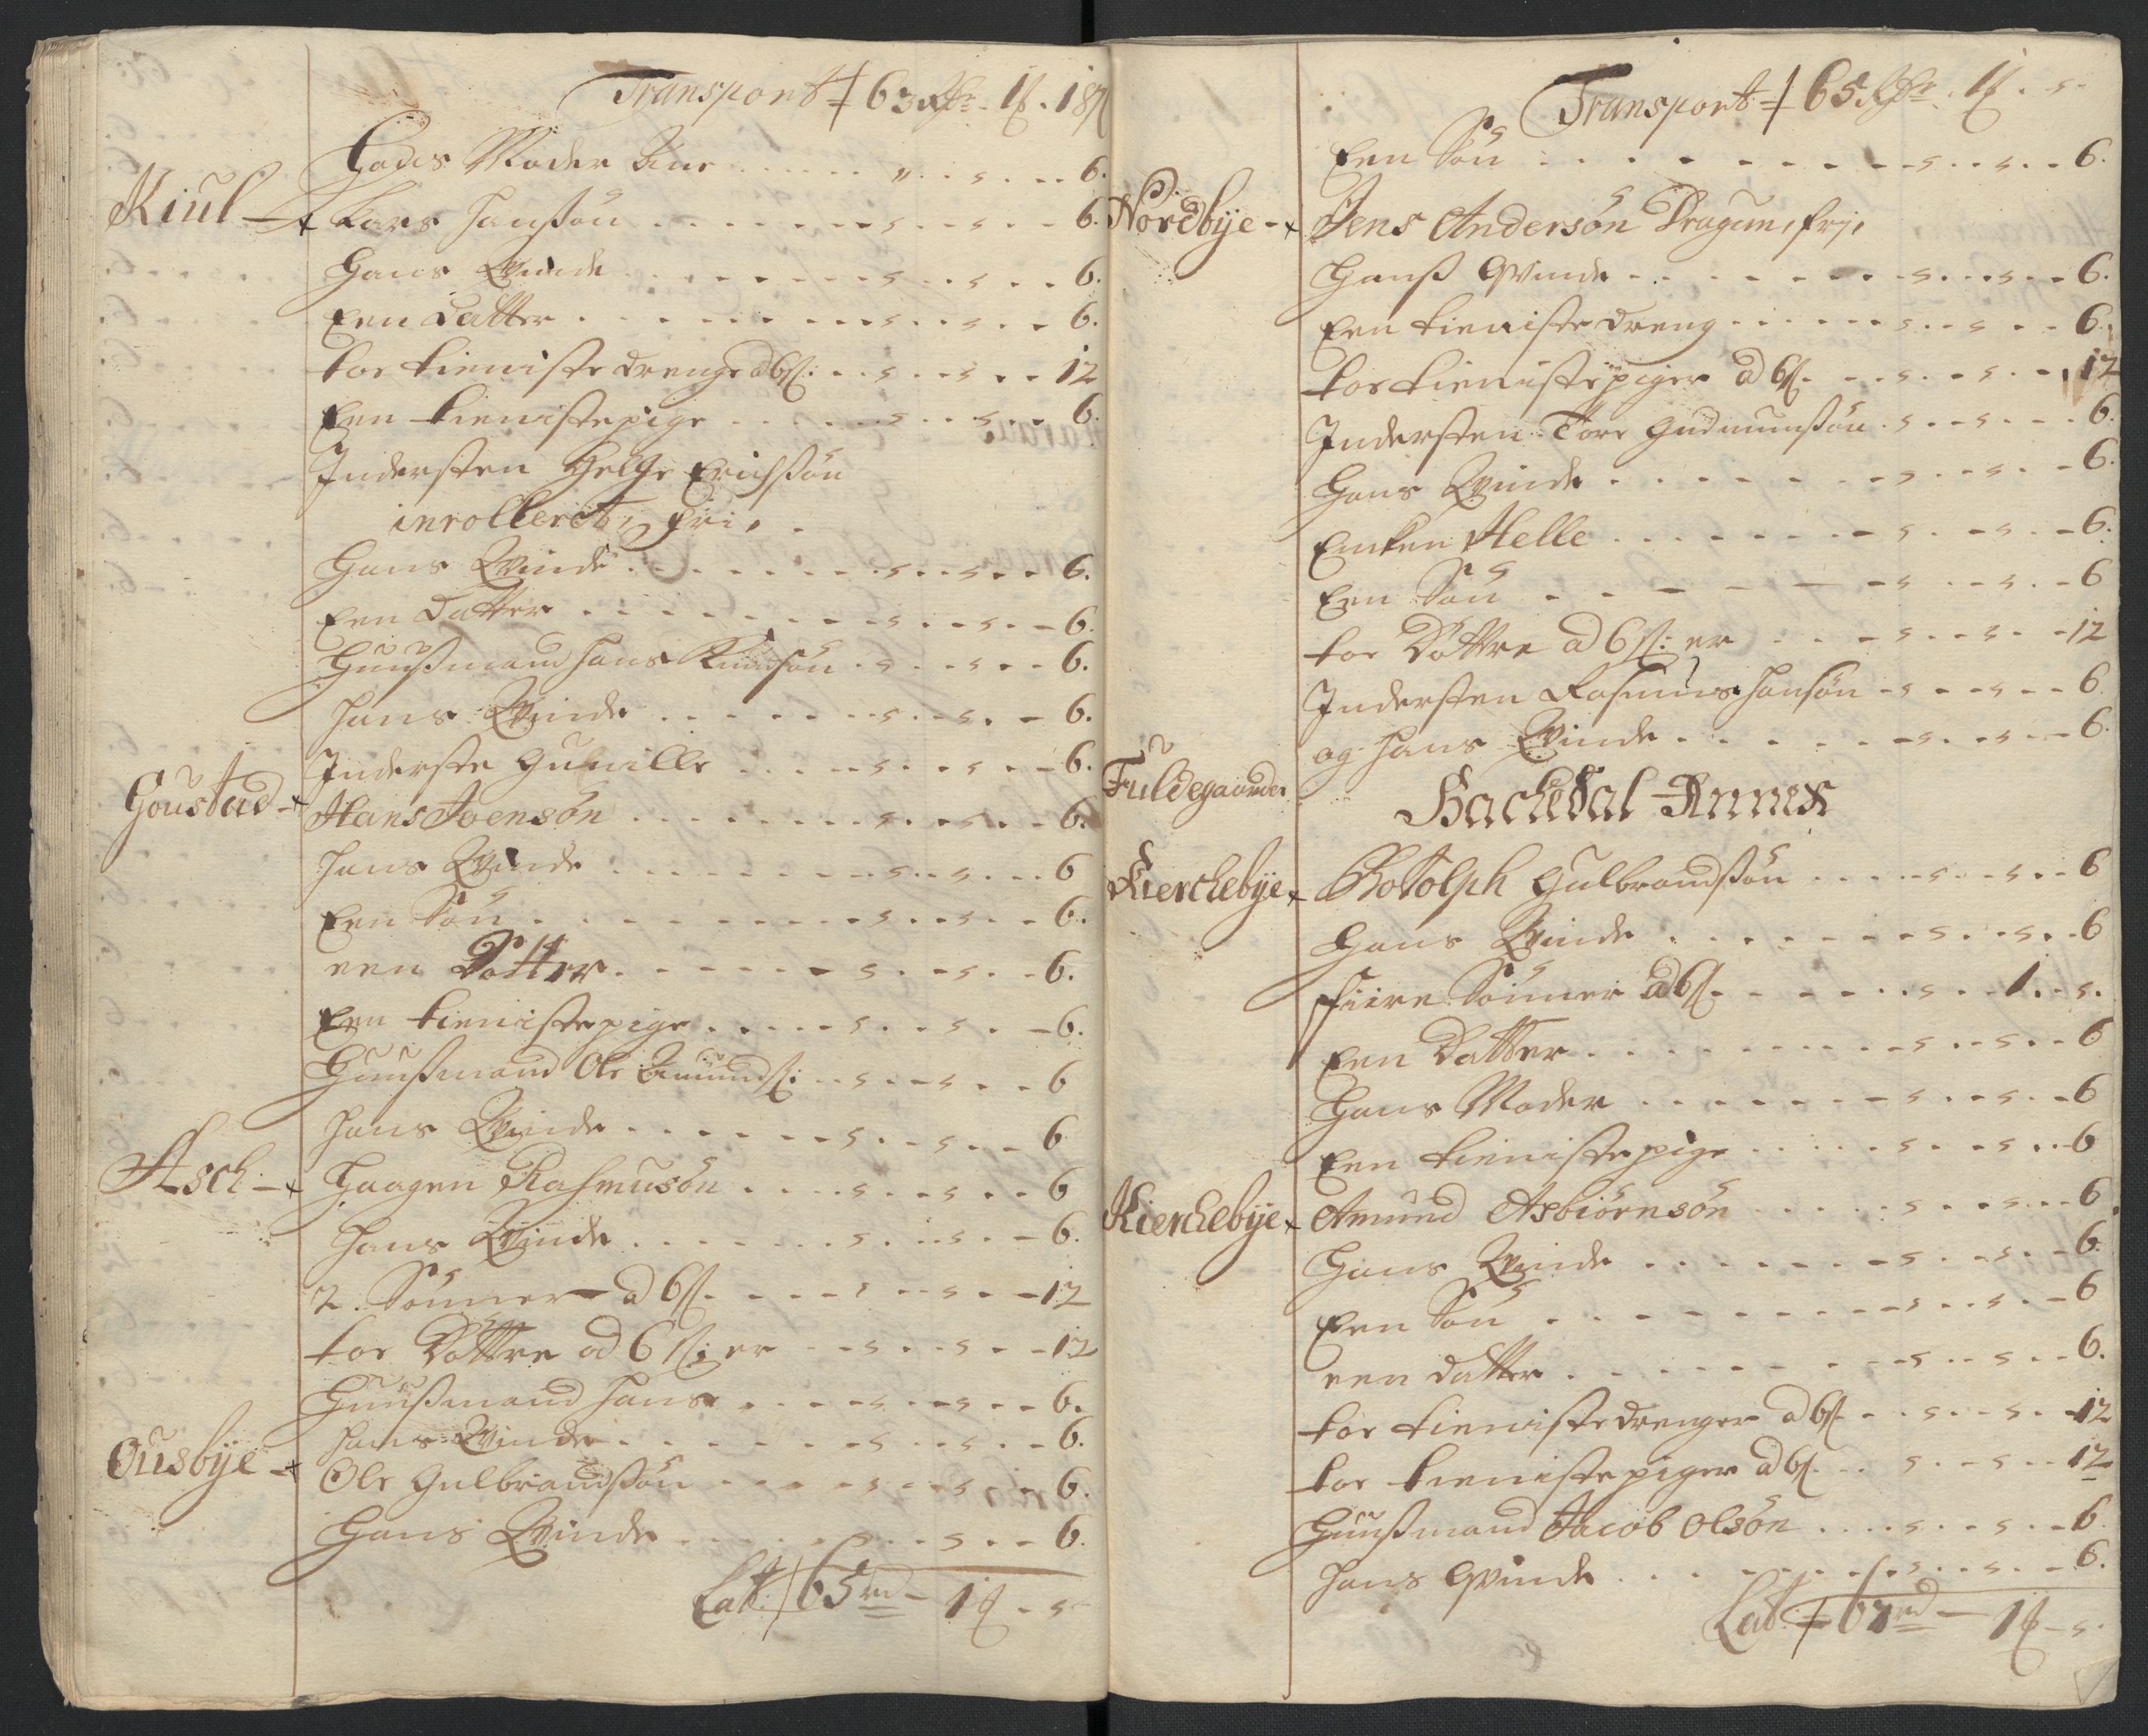 Transport 63 Rdr 1 ℔. 18 ß
Hans Moder Siur . . . . 6.
Kiul Lars Hanßøn . . . . 6.
Hans Qvinde . . . . 6.
Een Datter . . . . 6.
toe tieniste drenge ad 6 ß: . . . 12
Een tienistepige . . . . 6.
Indersten Helge Erichßøn
inrollerit, fri,
Hans Qvinde . . . . 6.
Een Datter . . . . 6.
Huußmand Hans Knudsøn . . . 6.
Hans Qvinde . . . . 6.
Inderste Gunille . . . . 6.
Goustad Hans Joensøn . . . . 6.
Hans Qvinde . . . . 6
Een Søn . . . . 6.
een Dotter . . . . 6.
Een tienistepige . . . . 6.
Huußmand Ole Amundß: . . . 6
Hans Qvinde . . . . 6
Asch Haagen Rasmusøn . . . . 6
Hans Qvinde . . . . 6.
2. Sønner ad 6 ß. . . . 12
toe Døttre ad 6 ß: er . . . 12
Huußmand Hans . . . . 6.
Hans Qvinde . . . . 6.
Ousbye Ole Gulbrandßøn . . . . 6.
Hans Qvinde . . . . 6.
Lat: 65 rd - 1 ℔ - s
Transport 65 Rdr 1 ℔. s
Een Søn . . . . 6.
Nordbye Jens Andersøn Dragun, frj,
Hanß Qvinde . . . . 6.
Een tieniste dreng . . . . 6.
toe tienistepiger ad 6 ß. . . . 12
Indersten Tore Gudmunßøn . . . 6.
Hans Qvinde . . . . 6.
Encken Helle . . . . 6.
Een Søn . . . . 6
toe Døttre ad 6 ß: er . . . 12
Indersten Rasmus Hansøn . . . 6.
og Hans Qvinde . . . . 6.
Fuldegaarder Hachedal Annex
Kierchebye Botolph Gulbrandßøn . . . . 6
Hans Qvinde . . . . 6
Fiire Sønner ad 6 ß . . . 1. s.
Een Datter . . . . 6
Hans Moder . . . . 6
Een tienistepige . . . . 6
Kierchebye Amund Asbiørnsøn . . . . 6.
Hans Qvinde . . . . 6.
Een Søn . . . . 6
een datter . . . . 6.
toe tieniste drenger ad 6 ß . . . 12
toe tienistepiger ad 6 ß . . . 12
Huußmand Jacob Olsøn . . . . 6
Hans Qvinde . . . . 6.
Lat: 67 rd - 1 ℔ - s.